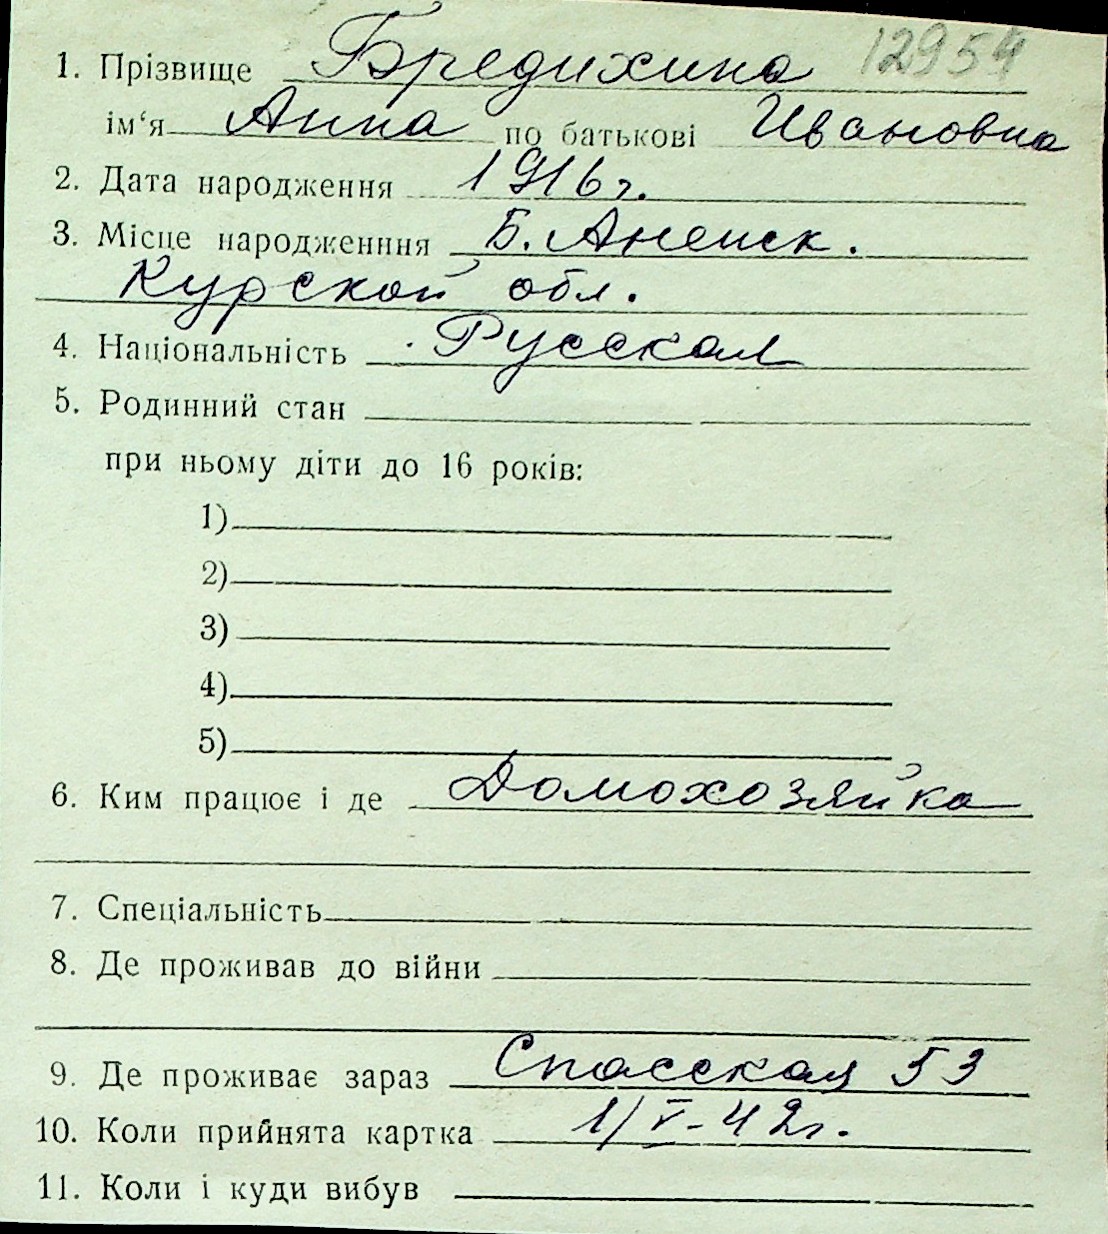 12954
1. Прізвище Бредихина
ім'я Анна по батькові Ивановна
2. Дата народження 1916 г.
3. Місце народженння Б.
Курской обл.
4. Національність Русская
5. Родинний стан
при ньому діти до 16 років:
1)
2)
3)
4)
5)
6. Ким працює і де Домохозяйка
7. Спеціальність
8. Де проживав до війни
9. Де проживає зараз Спасская 53
10. Коли прийнята картка 1/V-42г.
11. Коли і куди вибув